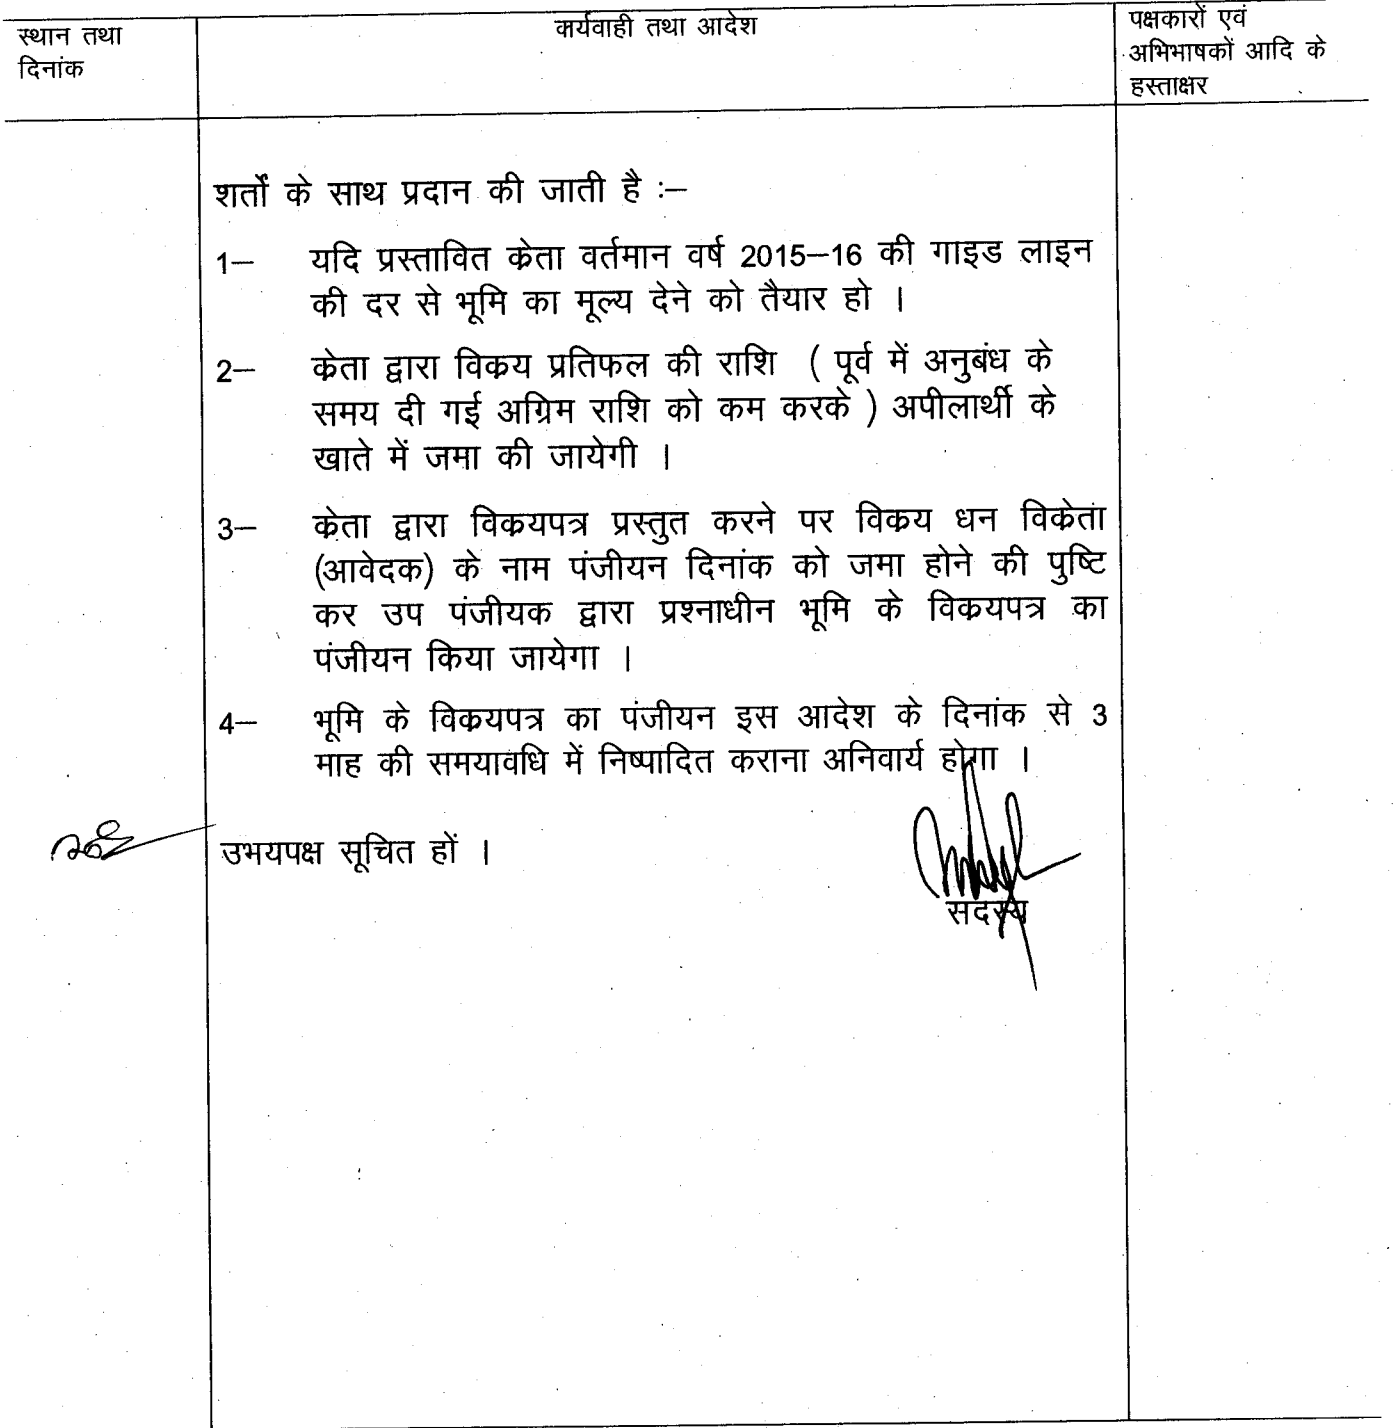 स्थान तथा
दिनांक
कार्यवाही तथा आदेश
पक्षकारों एवं
अभिभाषकों आदि के
हस्ताक्षर
शर्तों के साथ प्रदान की जाती है :—
1— यदि प्रस्तावित केता वर्तमान वर्ष 2015—16 की गाइड लाइन
की दर से भूमि का मूल्य देने को तैयार हो ।
2— केता द्वारा विकय प्रतिफल की राशि ( पूर्व में अनुबंध के
समय दी गई अग्रिम राशि को कम करके ) अपीलार्थी के
खाते में जमा की जायेगी ।
3— केता द्वारा विकयपत्र प्रस्तुत करने पर विकय धन विकेता
(आवेदक) के नाम पंजीयन दिनांक को जमा होने की पुष्टि
कर उप पंजीयक द्वारा प्रश्नाधीन भूमि के विकयपत्र का
पंजीयन किया जायेगा ।
4— भूमि के विकयपत्र का पंजीयन इस आदेश के दिनांक से 3
माह की समयावधि में निष्पादित कराना अनिवार्य होगा ।
उभयपक्ष सूचित हों ।
सदस्य